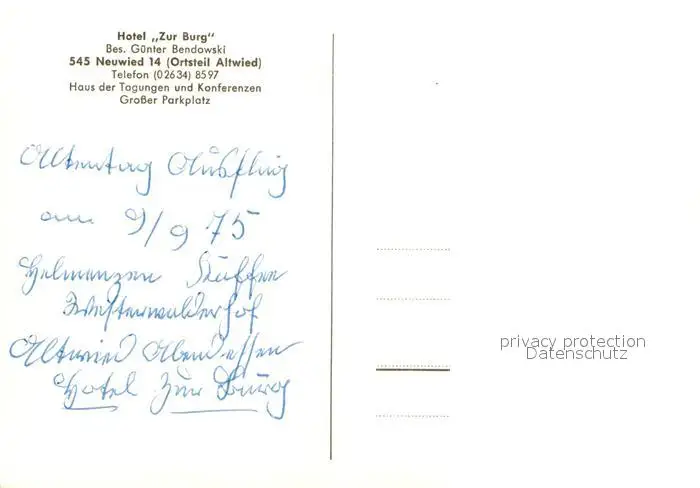 Hotel „Zur Burg"
Bes. Günter Bendowski
545 Neuwied 14 (Ortsteil Altwied)
Telefon (02634) 8597
Haus der Tagungen und Konferenzen
Großer Parkplatz
Altentag Ausflug
am 9/9 75
Helmenzen Kaffee
Westerwälderhof
Altwied Abendessen
Hotel zur Burg
privacy protection
Datenschutz